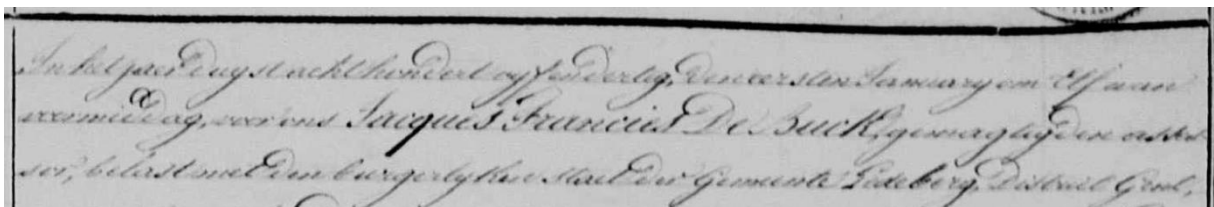 In het jaer duyst acht hondert vyf en dertig, den eersten January om Elf uren
voormiddag, voor ons Jacques Francies De Buck, gemagtigden asses
sor, belast met den burgerlyken staet der Gemeente Ledeberg, District Gend,